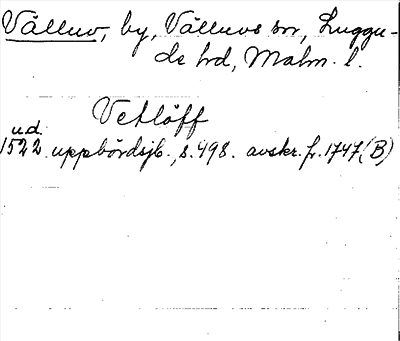 Välluv, by, Välluvs sn, Luggu-
de hd, Malm. l.
Vetlöff
u.d.
1522 uppbördsjb., s. 498. avskr. fr. 1747 (B)